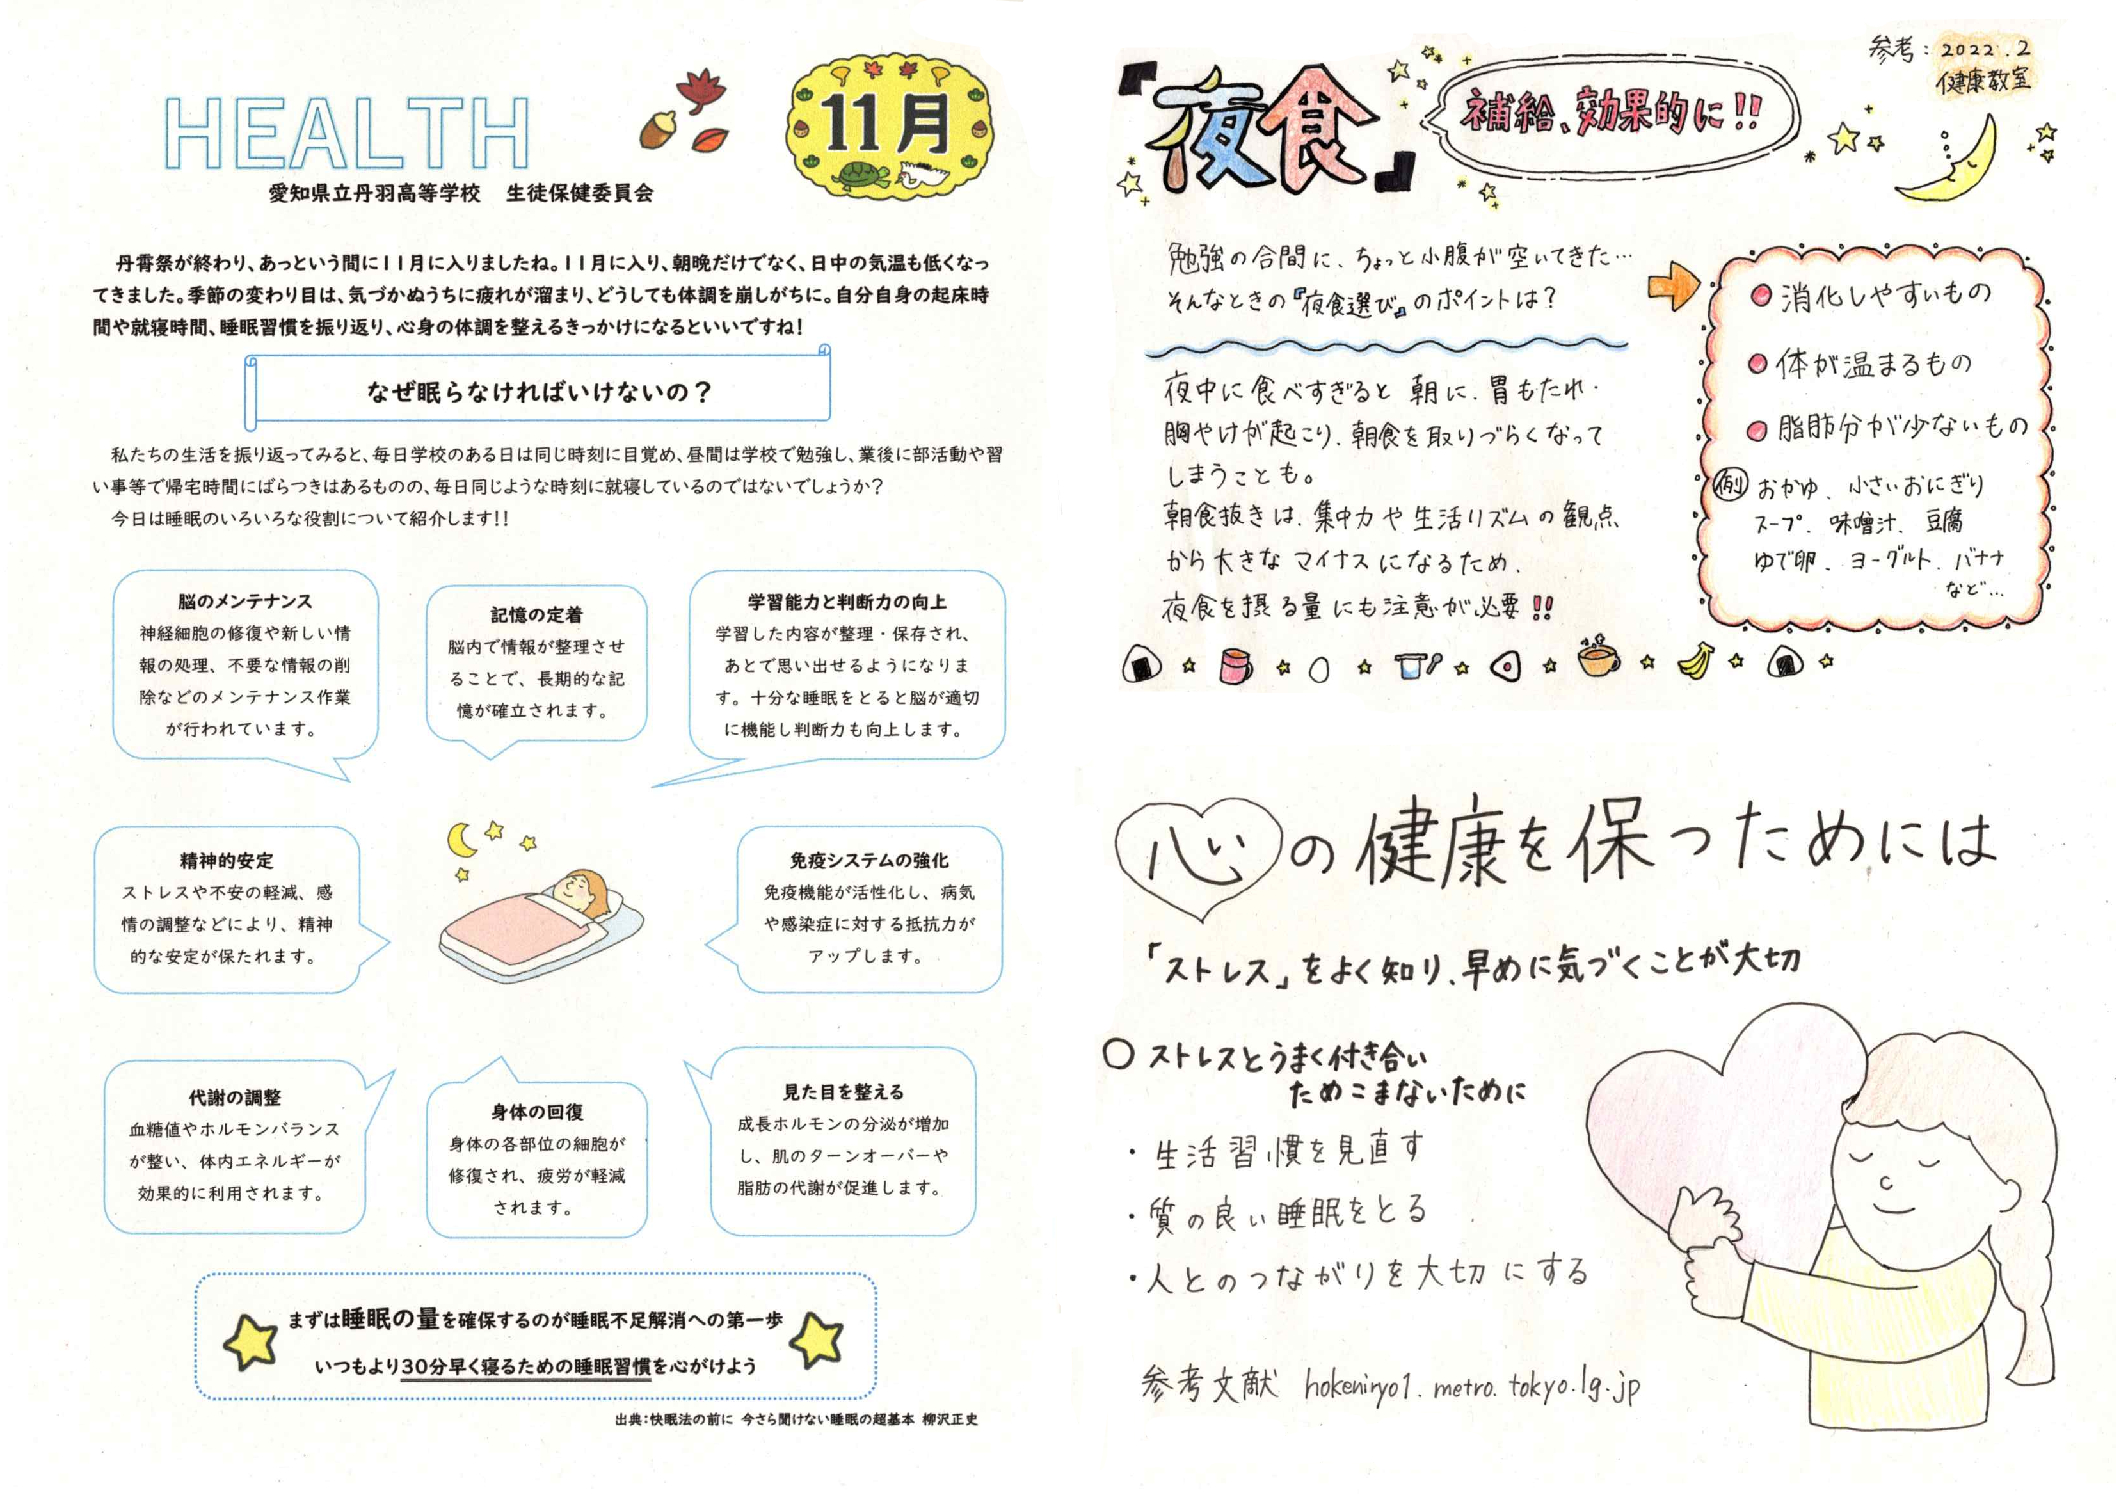 HEALTH
11月
愛知県立丹羽高等学校 生徒保健委員会
丹霄祭が終わり、あっという間に11月に入りましたね。11月に入り、朝晩だけでなく、日中の気温も低くなっ
てきました。季節の変わり目は、気づかぬうちに疲れが溜まり、どうしても体調を崩しがちに。自分自身の起床時
間や就寝時間、睡眠習慣を振り返り、心身の体調を整えるきっかけになるといいですね!
なぜ眠らなければいけないの?
私たちの生活を振り返ってみると、毎日学校のある日は同じ時刻に目覚め、昼間は学校で勉強し、業後に部活動や習
い事等で帰宅時間にばらつきはあるものの、毎日同じような時刻に就寝しているのではないでしょうか?
今日は睡眠のいろいろな役割について紹介します!!
脳のメンテナンス
神経細胞の修復や新しい情
報の処理、不要な情報の削
除などのメンテナンス作業
が行われています。
記憶の定着
脳内で情報が整理させ
ることで、長期的な記
憶が確立されます。
学習能力と判断力の向上
学習した内容が整理・保存され、
あとで思い出せるようになりま
す。十分な睡眠をとると脳が適切
に機能し判断力も向上します。
精神的安定
ストレスや不安の軽減、感
情の調整などにより、精神
的な安定が保たれます。
免疫システムの強化
免疫機能が活性化し、病気
や感染症に対する抵抗力が
アップします。
代謝の調整
血糖値やホルモンバランス
が整い、体内エネルギーが
効果的に利用されます。
身体の回復
身体の各部位の細胞が
修復され、疲労が軽減
されます。
見た目を整える
成長ホルモンの分泌が増加
し、肌のターンオーバーや
脂肪の代謝が促進します。
まずは睡眠の量を確保するのが睡眠不足解消への第一歩
いつもより30分早く寝るための睡眠習慣を心がけよう
出典:快眠法の前に 今さら聞けない睡眠の超基本 柳沢正史
『夜食』
補給、効果的に!!
参考:2022.2
健康教室
勉強の合間に、ちょっと小腹が空いてきた…
そんなときの『夜食選び』のポイントは?
夜中に食べすぎると朝に、胃もたれ・
胸やけが起こり、朝食を取りづらくなって
しまうことも。
朝食抜きは、集中力や生活リズムの観点
から大きなマイナスになるため、
夜食を摂る量にも注意が必要!!
消化しやすいもの
体が温まるもの
脂肪分が少ないもの
例 おかゆ、小さいおにぎり
スープ、味噌汁、豆腐
ゆで卵、ヨーグルト、バナナ
など…
心の健康を保つためには
「ストレス」をよく知り、早めに気づくことが大切
○ストレスとうまく付き合い
ためこまないために
・生活習慣を見直す
・質の良い睡眠をとる
・人とのつながりを大切にする
参考文献 hokeniryo1.metro.tokyo.lg.jp